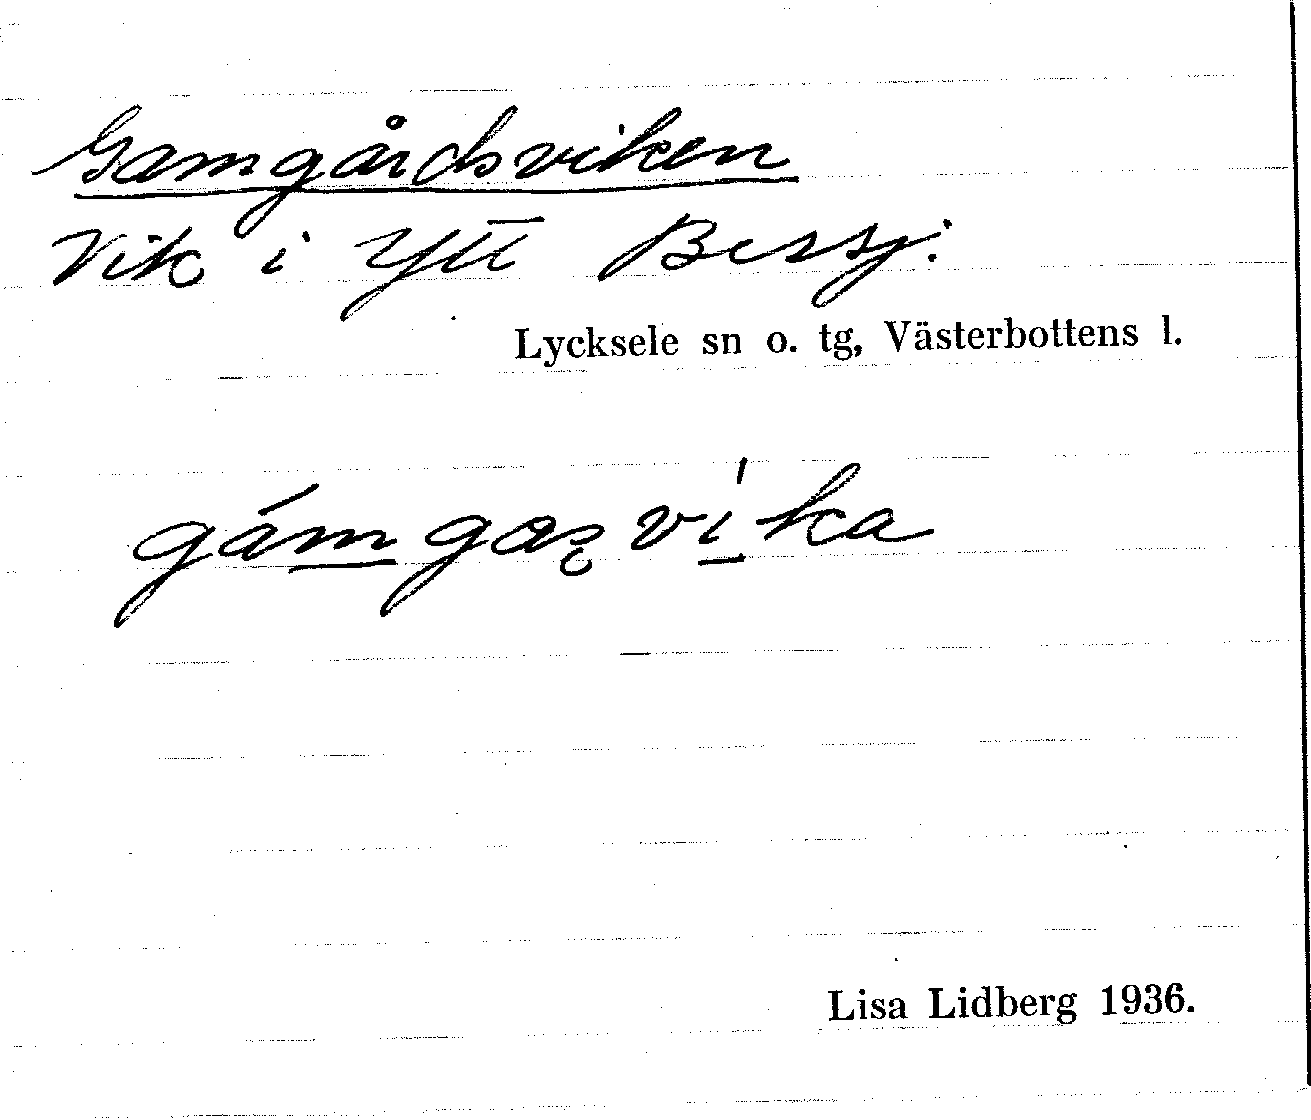 Gamgårdsviken
Vik i Ytt Bessj.
Lycksele sn o. tg, Västerbottens l.
gámgas̨víka
Lisa Lidberg 1936.